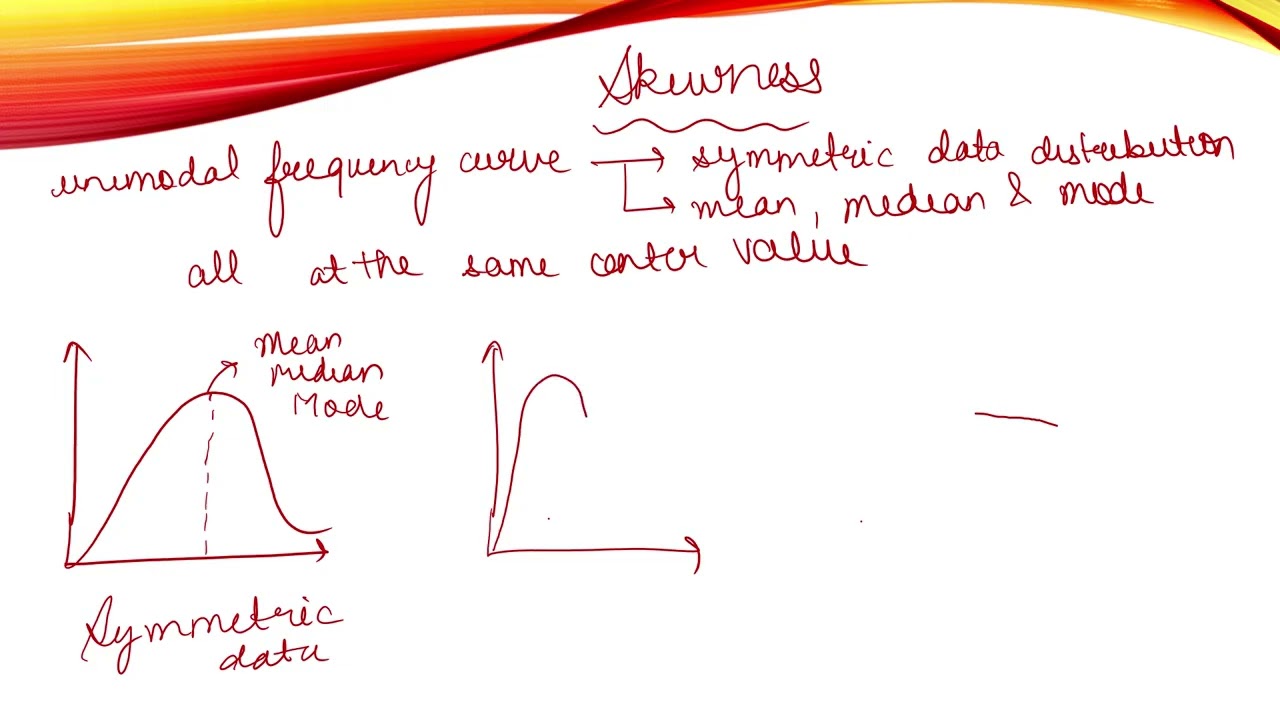 Skewness
unimodal frequency curve → symmetric data distribution
→ mean, median & mode
all at the same center value
Mean
median
Mode
Symmetric
data